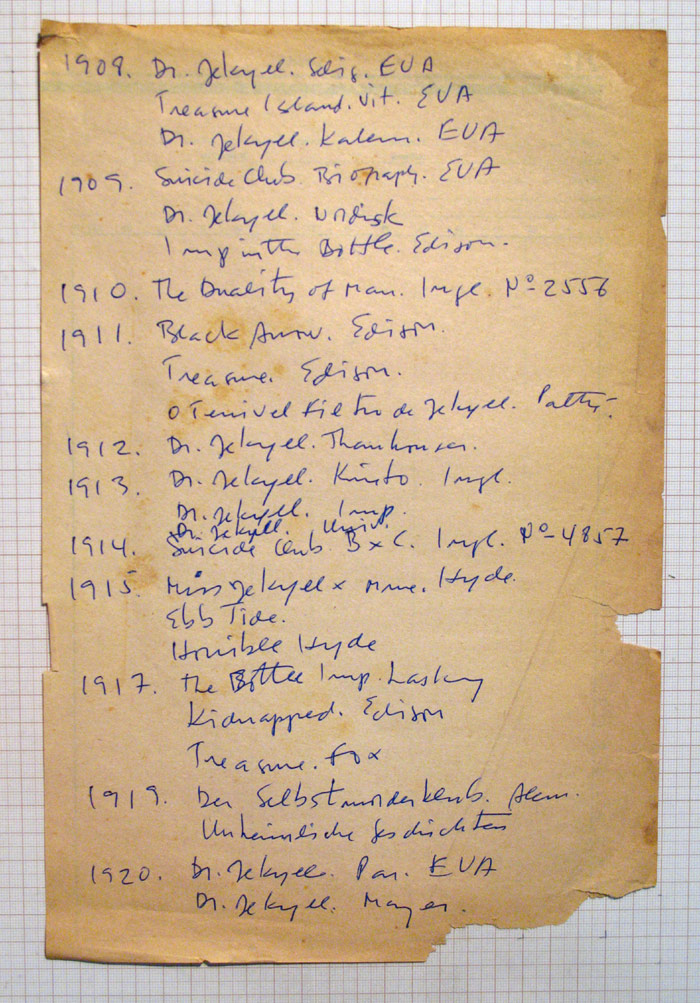 1908. Dr. Jekyll. Selig. EUA
Treasure Island. Vit. EUA
Dr. Jekyll. Kalem. EUA
1909. Suicide Club. Biograph. EUA
Dr. Jekyll. Nordisk
Imp in the Bottle. Edison.
1910. The Duality of Man. Ingl. Nº 2556
1911. Black Arrow. Edison.
Treasure. Edison.
O Terrivel Filtro de Jekyll. Pathé.
1912. Dr. Jekyll. Thanhouser.
1913. Dr. Jekyll. Kineto. Ingl.
Dr. Jekyll. Imp.
Dr. Jekyll. Univ.
1914. Suicide Club B x C. Ingl. Nº 4857
1915. Miss Jekyll x Mme. Hyde.
Ebb Tide.
Horrible Hyde
1917. The Bottle Imp. Lasky
Kidnapped. Edison
Treasure. Fox
1919. Der Selbstmorderklub. Alem.
Unheimlische Geschichten
1920. Dr. Jekyll. Par. EUA
Dr. Jekyll. Mayer.